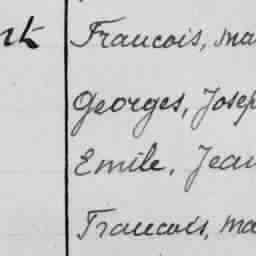 Francois, ma
Georges, Josep
Emile, Jean
Francois, ma